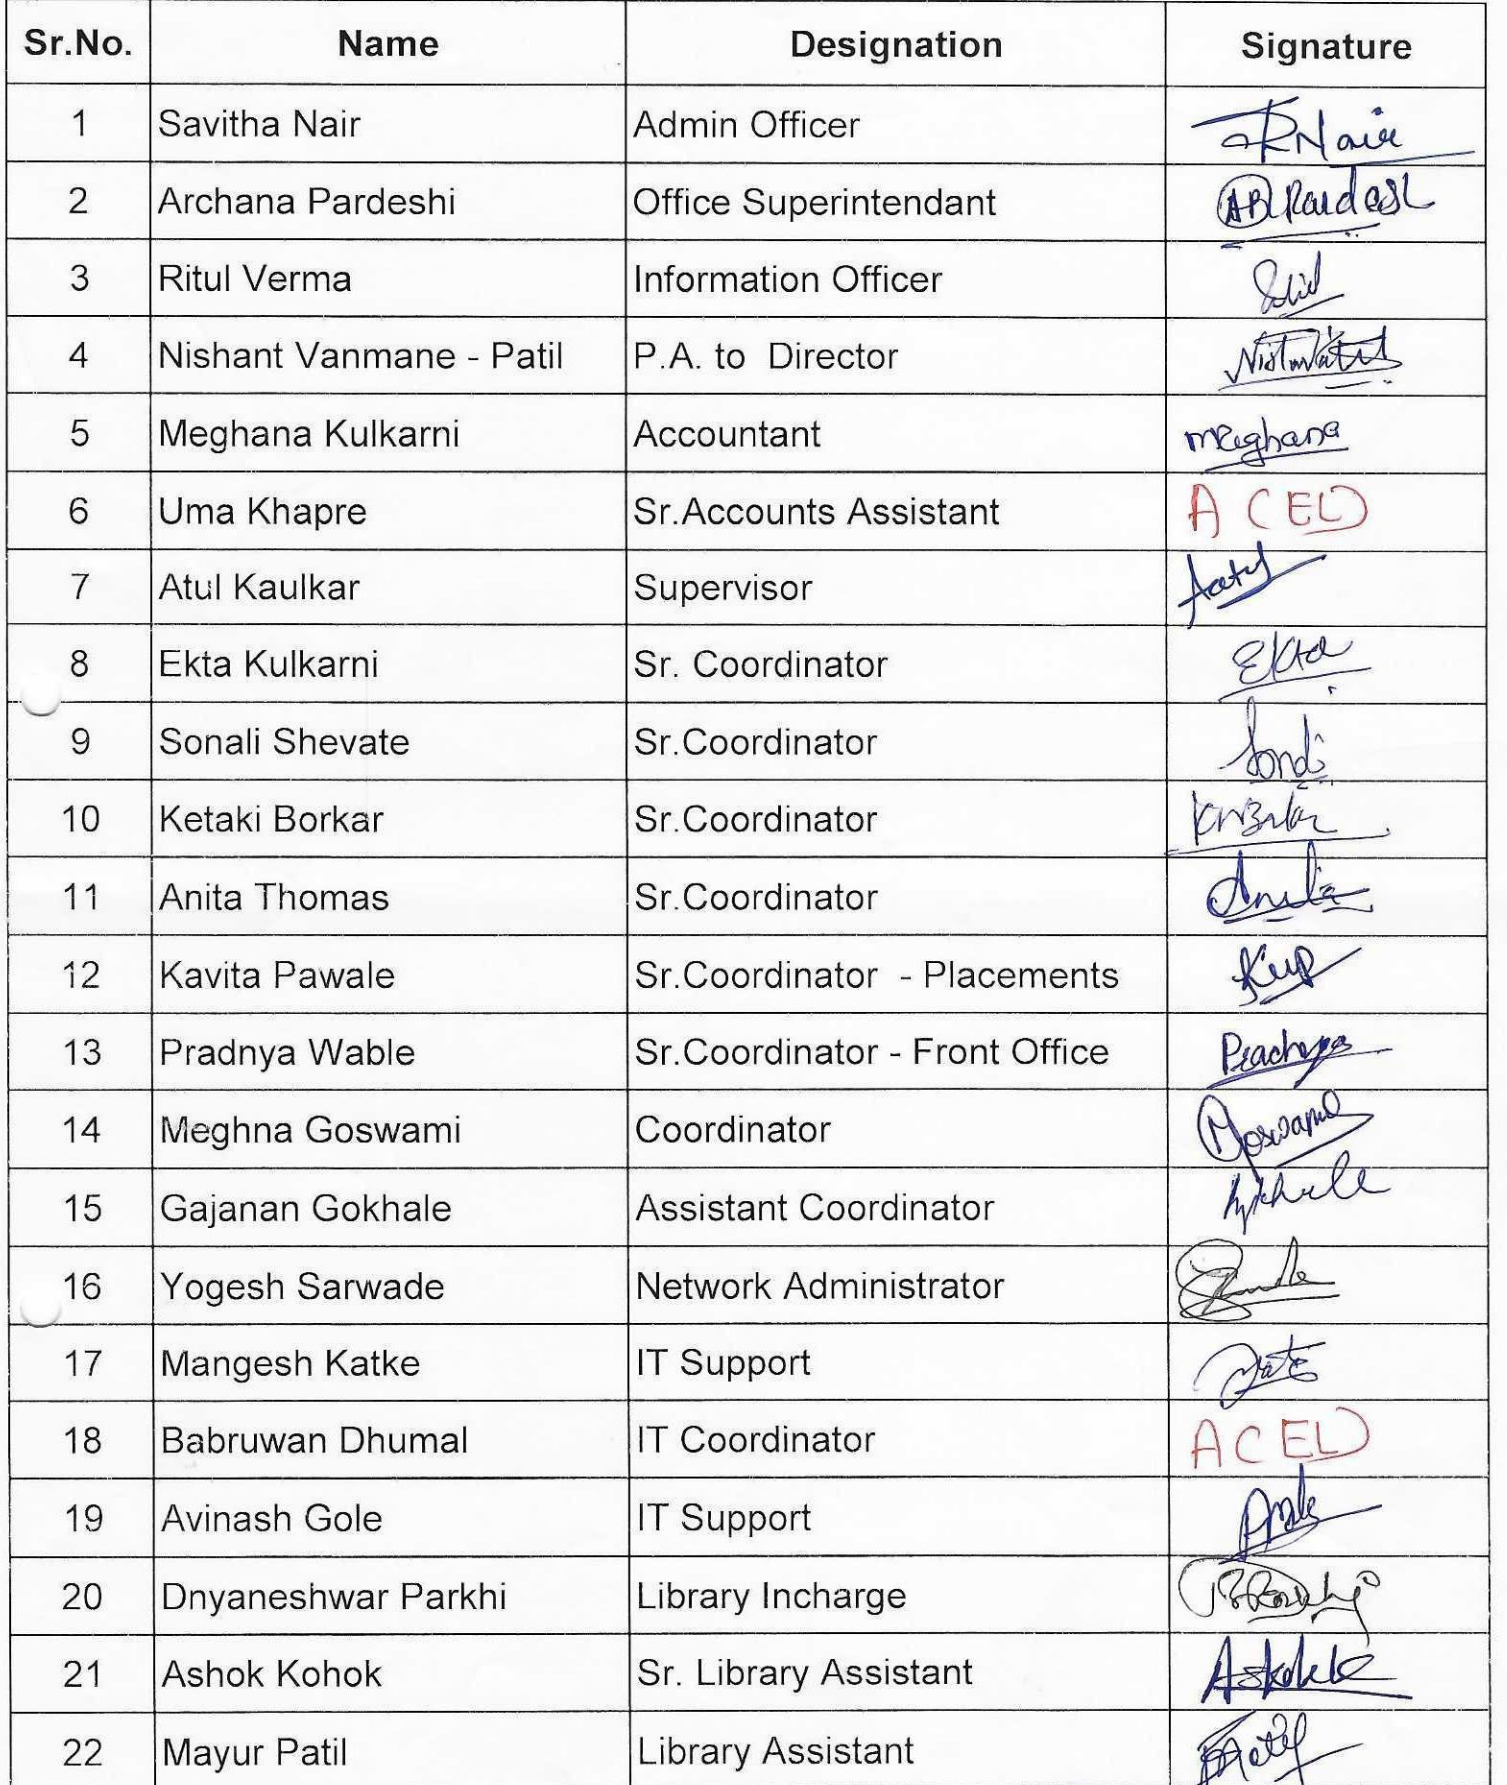 Sr.No. Name Designation Signature
1 Savitha Nair Admin Officer
2 Archana Pardeshi Office Superintendant
3 Ritul Verma Information Officer
4 Nishant Vanmane - Patil P.A. to Director
5 Meghana Kulkarni Accountant Meghana
6 Uma Khapre Sr.Accounts Assistant A (EL)
7 Atul Kaulkar Supervisor
8 Ekta Kulkarni Sr. Coordinator Ekta
9 Sonali Shevate Sr.Coordinator
10 Ketaki Borkar Sr.Coordinator
11 Anita Thomas Sr.Coordinator Anita
12 Kavita Pawale Sr.Coordinator - Placements
13 Pradnya Wable Sr.Coordinator - Front Office
14 Meghna Goswami Coordinator
15 Gajanan Gokhale Assistant Coordinator
16 Yogesh Sarwade Network Administrator
17 Mangesh Katke IT Support
18 Babruwan Dhumal IT Coordinator A (EL)
19 Avinash Gole IT Support
20 Dnyaneshwar Parkhi Library Incharge
21 Ashok Kohok Sr. Library Assistant
22 Mayur Patil Library Assistant